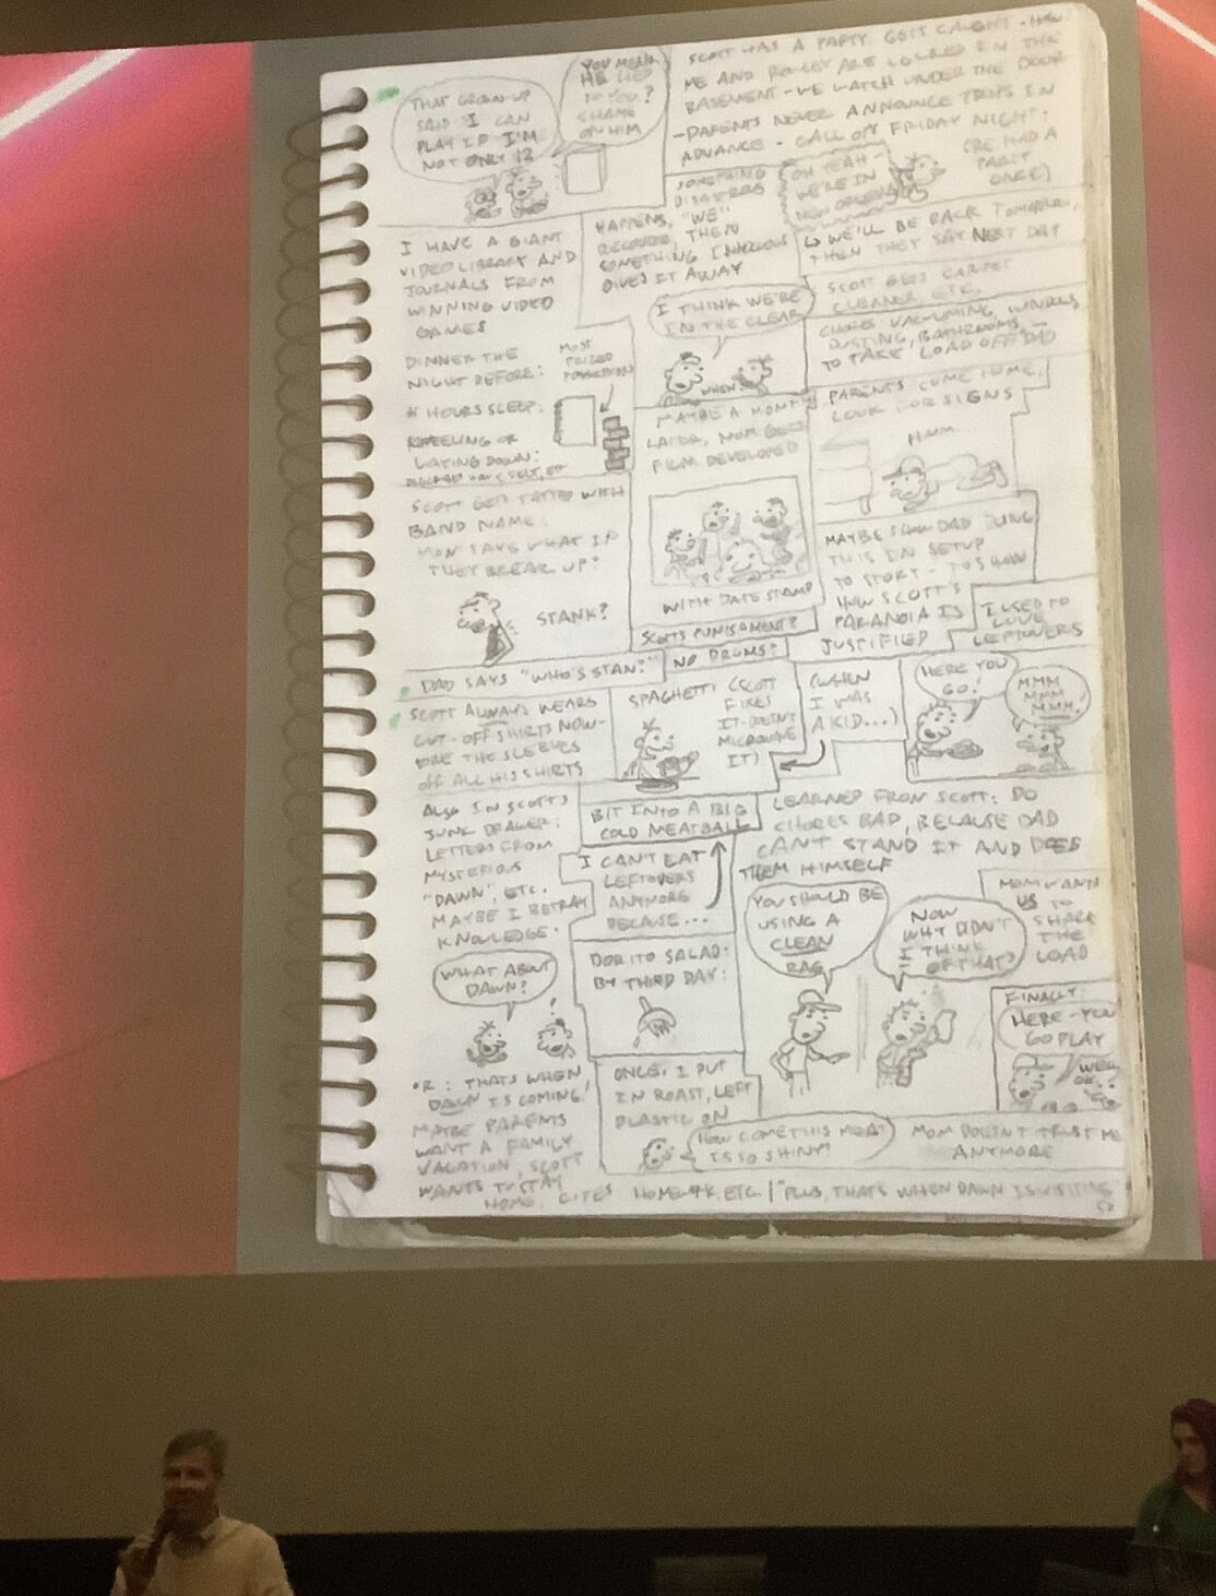 THAT GROWN-UP
SAID "I CAN
PLAY IF I'M
NOT ONLY 12
YOU MEAN
HE LIED
TO YOU?
SHAME
ON HIM
SCOTT HAS A PARTY. GETS CAUGHT - HOW?
ME AND ROWLEY ARE LOCKED IN THE
BASEMENT - WE WATCH UNDER THE DOOR
- PARENTS NEVER ANNOUNCE TRIPS IN
ADVANCE - CALL ON FRIDAY NIGHT:
(RE HAD A
PARTY
ONCE)
OH YEAH -
WE'RE IN
NEW ORLEANS
↳ WE'LL BE BACK TOMORROW,
THEN THEY SAY NEXT DAY
SOMETHING
DISASTROUS
HAPPENS, "WE"
RECOVER, THEN
SOMETHING INNOCUOUS
GIVES IT AWAY
I HAVE A GIANT
VIDEO LIBRARY AND
JOURNALS FROM
WINNING VIDEO
GAMES
DINNER THE
NIGHT BEFORE:
# HOURS SLEEP:
KNEELING OR
LAYING DOWN:
MOST
PRIZED
POSSESSION
I THINK WE'RE
IN THE CLEAR
WHEW.
SCOTT GETS CARPET
CLEANER ETC.
CHORES: VACUUMING, WINDOWS
DUSTING, BATHROOMS -
TO TAKE LOAD OFF DAD
PARENTS COME HOME,
LOOK FOR SIGNS
HMM...
MAYBE A MONTH
LATER, MOM GETS
FILM DEVELOPED
WITH DATE STAMP
SCOTT'S PUNISHMENT?
NO DRUMS?
MAYBE SHOW DAD DOING
THIS IN SETUP
TO STORY - TO SHOW
HOW SCOTT'S
PARANOIA IS
JUSTIFIED
SCOTT GETS TATTOO WITH
BAND NAME.
MOM SAYS WHAT IF
THEY BREAK UP?
STANK?
DAD SAYS "WHO'S STAN?"
I USED TO
LOVE
LEFTOVERS
HERE YOU
GO!
MMM
MMM
MMM!
(WHEN
I WAS
A KID...)
SPAGHETTI (SCOTT
FIXES
IT - DOESN'T
MICROWAVE
IT)
BIT INTO A BIG
COLD MEATBALL
I CAN'T EAT
LEFTOVERS
ANYMORE
BECAUSE...
SCOTT ALWAYS WEARS
CUT-OFF SHIRTS NOW -
TORE THE SLEEVES
OFF ALL HIS SHIRTS
ALSO IN SCOTT'S
JUNK DRAWER:
LETTERS FROM
MYSTERIOUS
"DAWN", ETC.
MAYBE I BETRAY
KNOWLEDGE.
WHAT ABOUT
DAWN?
• R: THAT'S WHEN
DAWN IS COMING!
MAYBE PARENTS
WANT A FAMILY
VACATION, SCOTT
WANTS TO STAY
HOME, CITES HOMEWORK, ETC. | "PLUS, THAT'S WHEN DAWN IS VISITING
DORITO SALAD:
BY THIRD DAY:
ONCE, I PUT
IN ROAST, LEFT
PLASTIC ON
HOW COME THIS MEAT
IS SO SHINY?
MOM DOESN'T TRUST ME
ANYMORE
LEARNED FROM SCOTT: DO
CHORES BAD, BECAUSE DAD
CAN'T STAND IT AND DOES
THEM HIMSELF
YOU SHOULD BE
USING A
CLEAN
RAG
NOW
WHY DIDN'T
I THINK
OF THAT?
MOM WANTS
US TO
SHARE
THE
LOAD
FINALLY:
HERE - YOU
GO PLAY
WELL
OK...